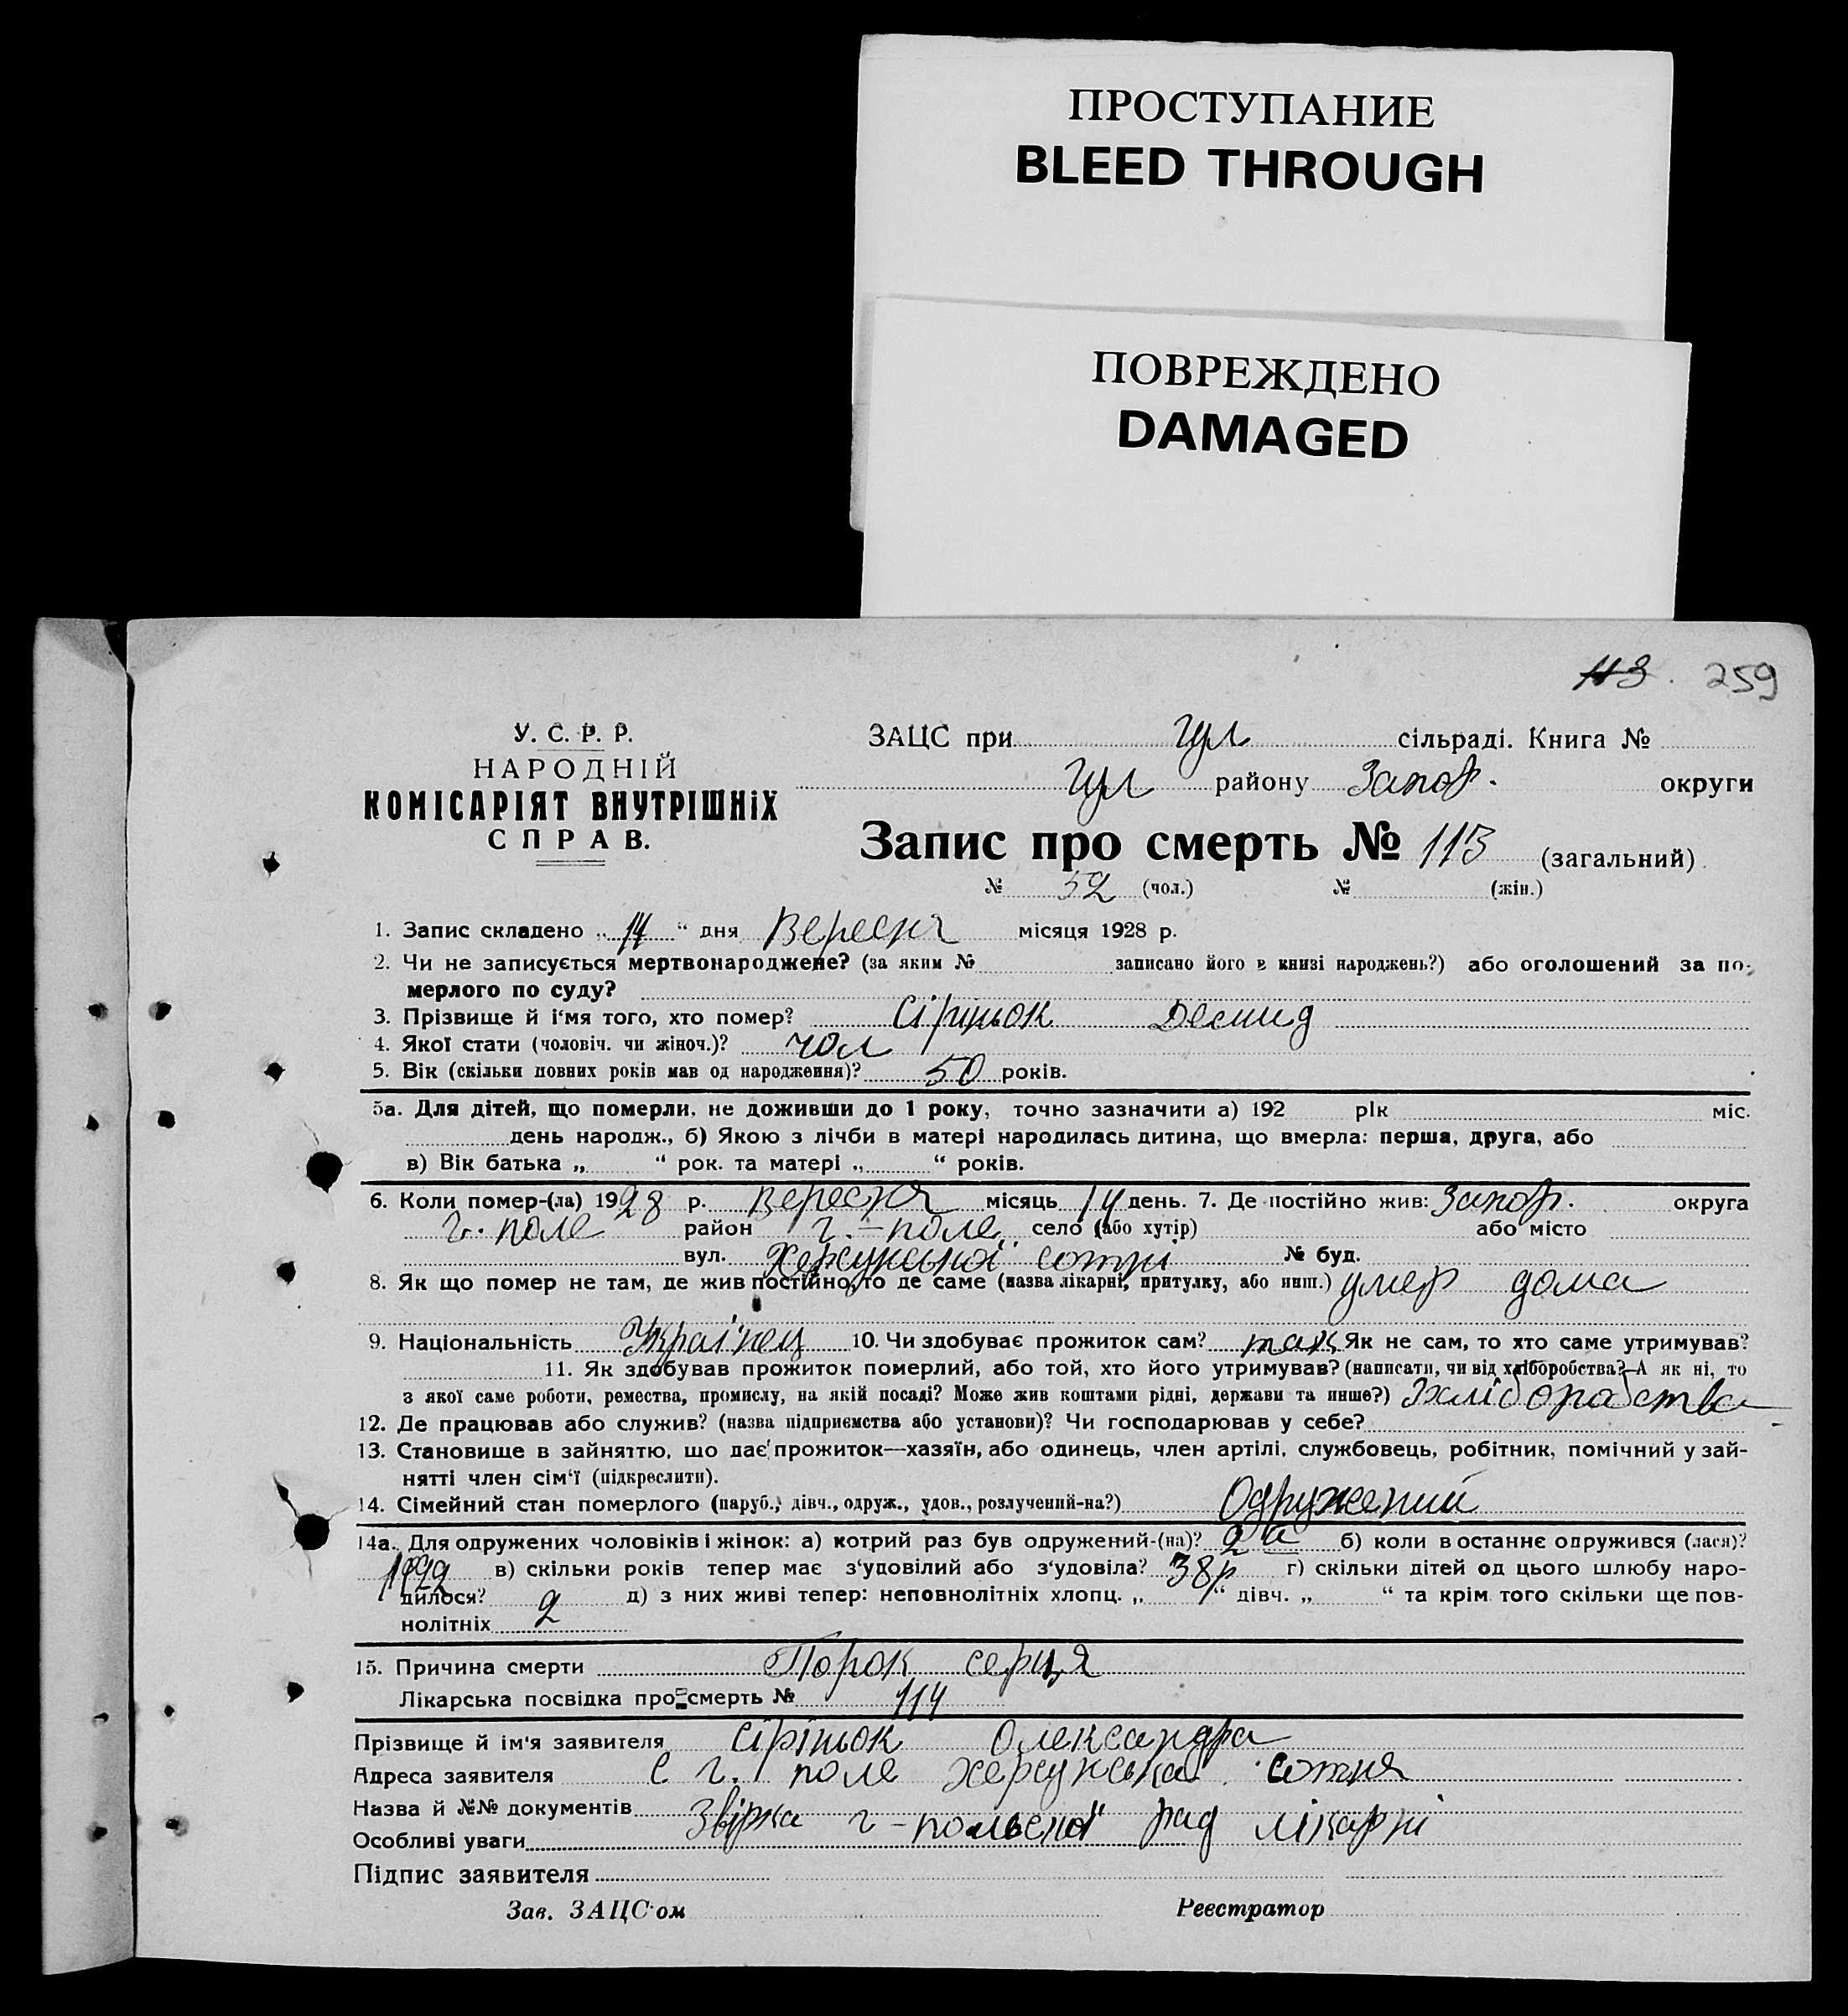 ПРОСТУПАНИЕ
BLEED THROUGH
ПОВРЕЖДЕНО
DAMAGED
113. 259
У. С. Р. Р.
НАРОДНІЙ
КОМІСАРІЯТ ВНУТРІШНІХ
СПРАВ.
ЗАЦС при Гул сільраді. Книга №
Гул району Запор. округи
Запис про смерть № 113 (загальний)
№ 52 (чол.) № (жін.)
1. Запис складено „ 14 “ дня Вересня місяця 1928 р.
2. Чи не записується мертвонароджене? (за яким № записано його в книзі народжень?) або оголошений за по-
мерлого по суду?
3. Прізвище й і‘мя того, хто помер? Сіріньок Демид
4. Якої стати (чоловіч. чи жіноч.)? чол
5. Вік (скільки повних років мав од народження)? 50 років.
5а. Для дітей, що померли, не доживши до 1 року, точно зазначити а) 192 рік міс.
день народж., б) Якою з лічби в матері народилась дитина, що вмерла: перша, друга, або
в) Вік батька „ “ рок. та матері „ “ років.
6. Коли помер-(ла) 1928 р. вересня місяць 14 день. 7. Де постійно жив: Запор. округа
Г. поле район Г.-поле село (або хутір) або місто
вул. Херсунської сотні № буд.
8. Як що помер не там, де жив постійно, то де саме (назва лікарні, притулку, або инш.) умер дома
9. Національність Українец 10. Чи здобуває прожиток сам? так Як не сам, то хто саме утримував?
11. Як здобував прожиток померлий, або той, хто його утримував? (написати, чи від хліборобства?—А як ні, то
з якої саме роботи, ремества, промислу, на якій посаді? Може жив коштами рідні, держави та инше?) Зхліборобства
12. Де працював або служив? (назва підприємства або установи)? Чи господарював у себе?
13. Становище в зайняттю, що дає прожиток—хазяїн, або одинець, член артілі, службовець, робітник, помічний у зай-
нятті член сім‘ї (підкреслити).
14. Сімейний стан померлого (паруб., дівч., одруж., удов., розлучений-на?) Одружений
14а. Для одружених чоловіків і жінок: а) котрий раз був одружений-(на)? 2й б) коли востаннє одружився (лася)?
1922 в) скільки років тепер має з‘удовілий або з‘удовіла? 38р г) скільки дітей од цього шлюбу наро-
дилося? 2 д) з них живі тепер: неповнолітніх хлопц. „ “ дівч. „ “ та крім того скільки ще пов-
нолітніх
15. Причина смерти Порок серця
Лікарська посвідка про смерть № 114
Прізвище й ім‘я заявителя Сіріньок Олександра
Адреса заявителя С Г. поле Херсунська сотня
Назва й №№ документів Звірка Г-польскої рад лікарні
Особливі уваги
Підпис заявителя
Зав. ЗАЦС‘ом Реєстратор